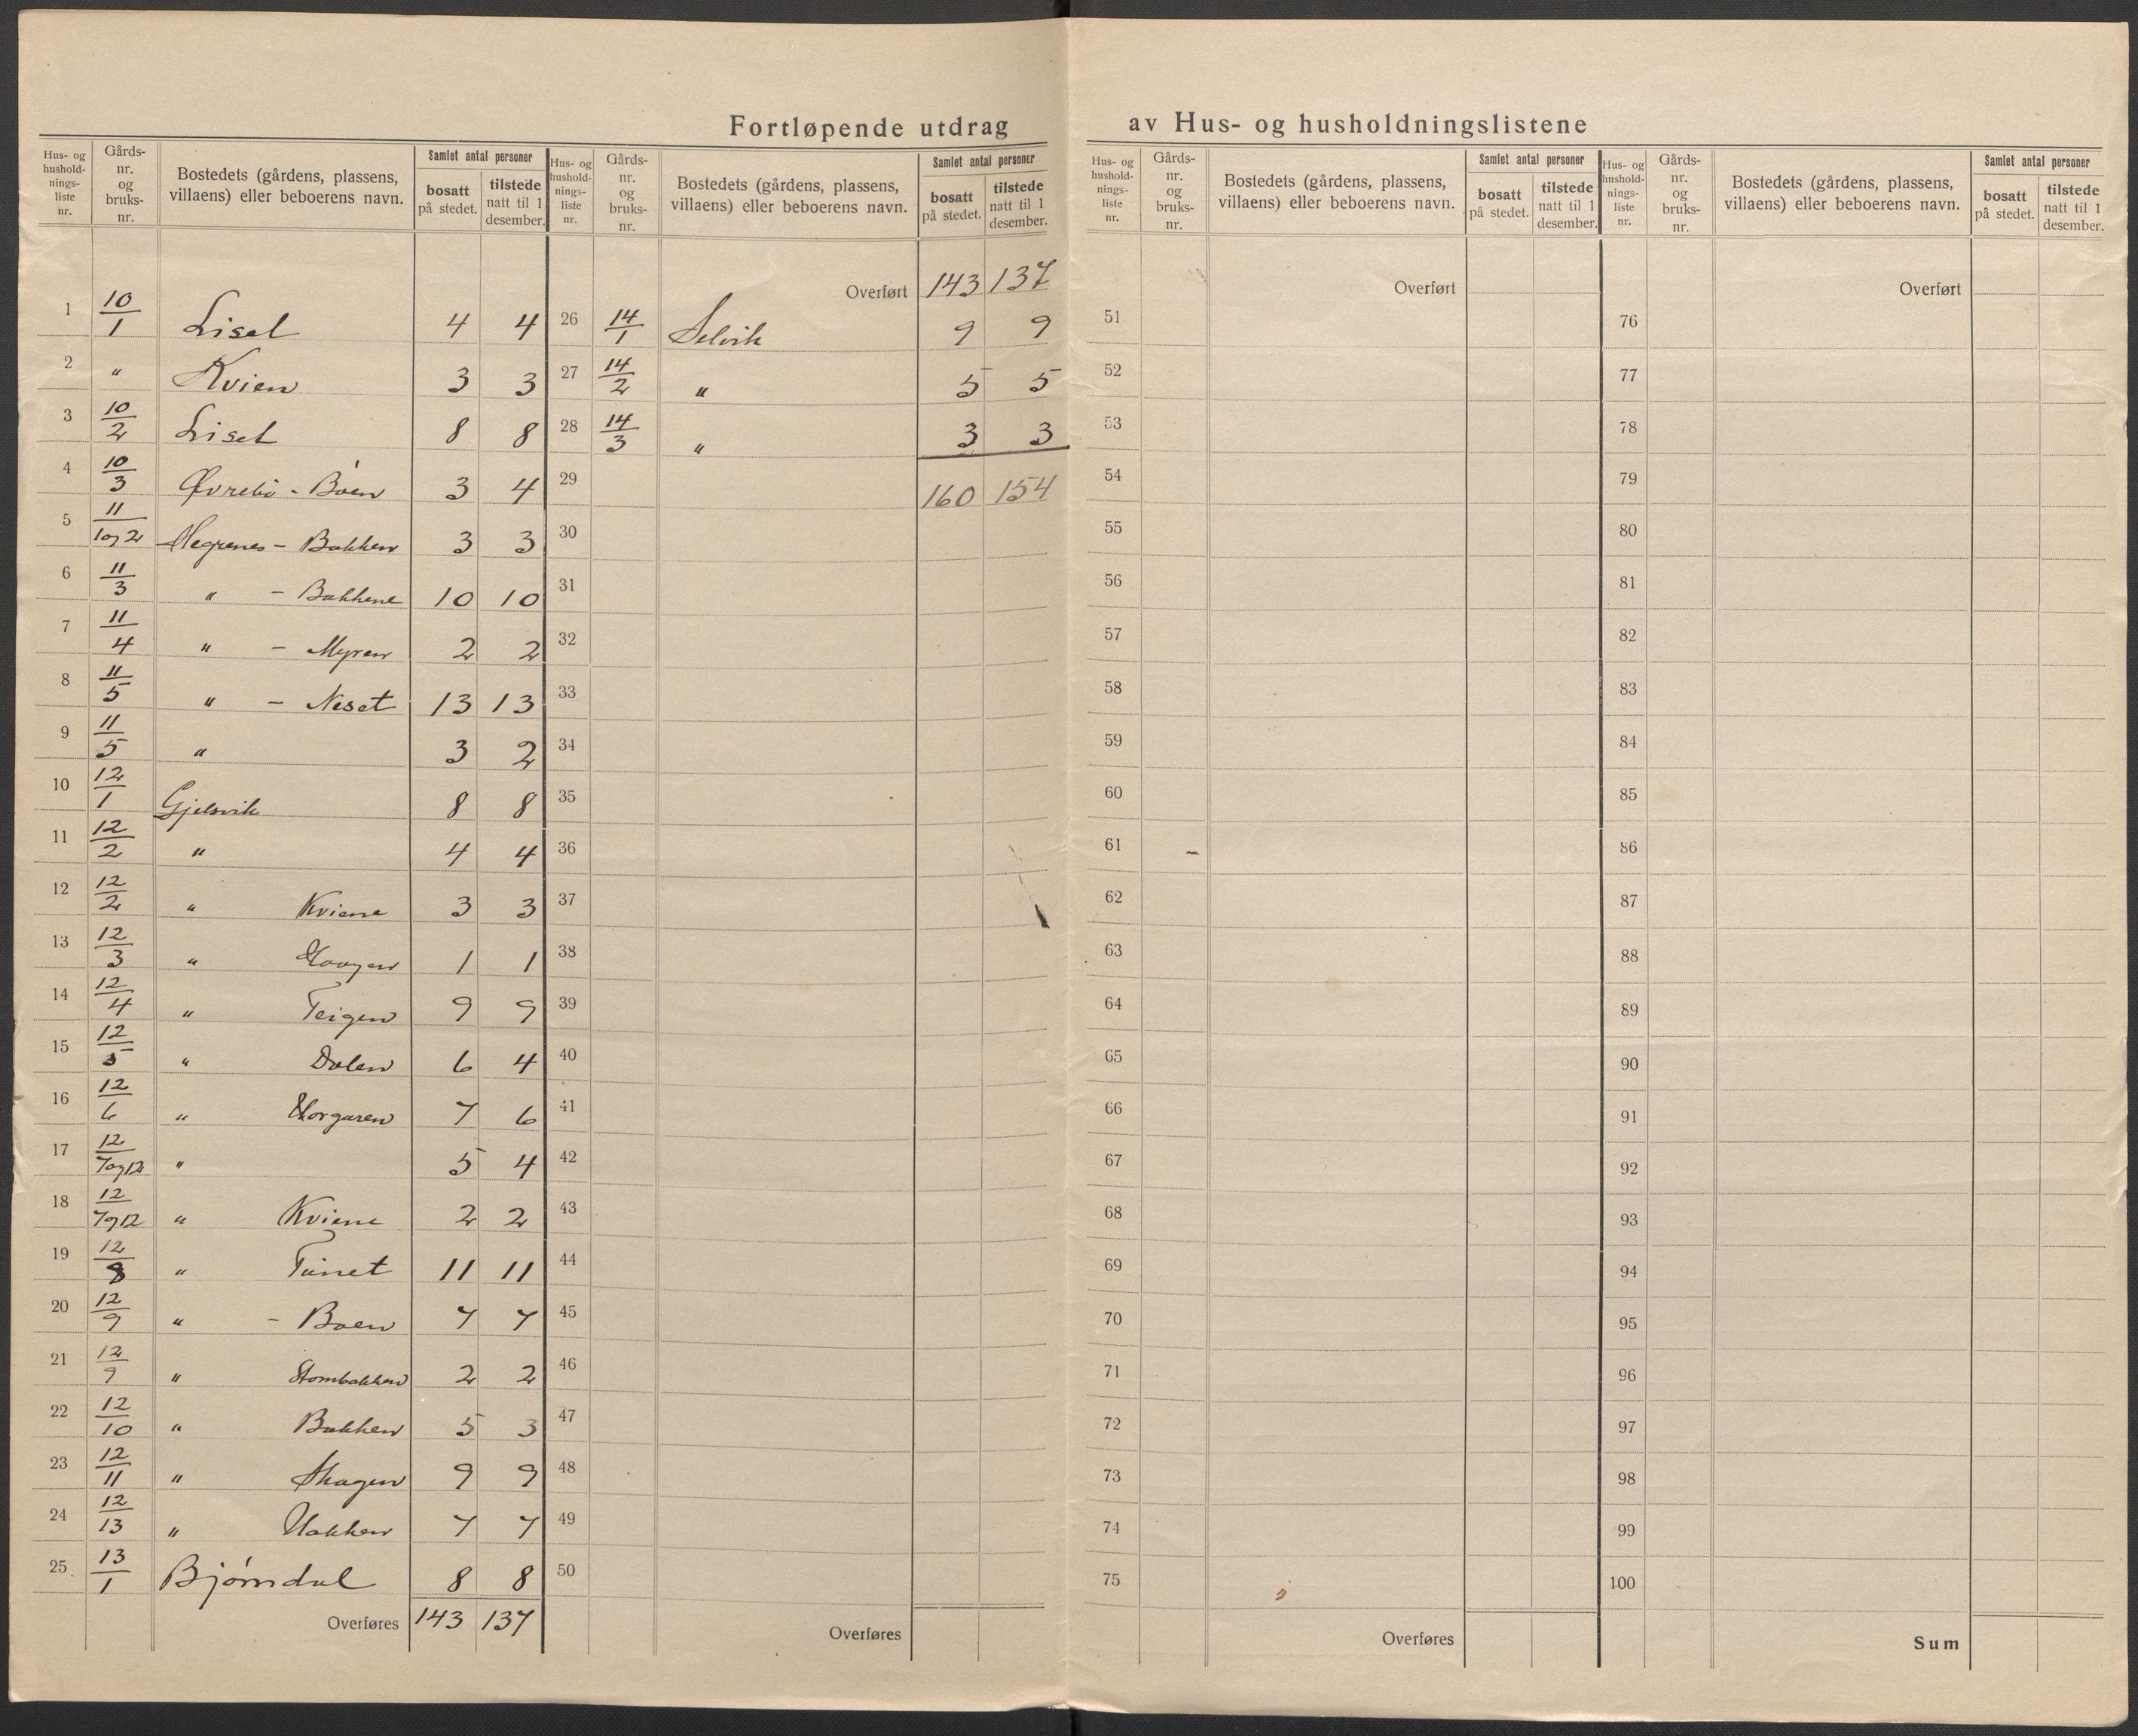 Fortløpende utdrag av Hus- og husholdningslistene
Hus- og hushold-nings-liste nr. Gårds-nr. og bruks-nr. Bostedets (gårdens, plassens, villaens) eller beboerens navn. Samlet antal personer bosatt på stedet. tilstede natt til 1 desember.
1 10/1 Liset 4 4
2 " Kvien 3 3
3 10/2 Liset 8 8
4 10/3 Øvrebö - Böen 3 4
5 11/1og2 Hegrenes - Bakken 3 3
6 11/3 " - Bakkene 10 10
7 11/4 " - Myren 2 2
8 11/5 " - Neset 13 13
9 11/5 " 3 2
10 12/1 Gjelsvik 8 8
11 12/2 " 4 4
12 12/2 " Kviene 3 3
13 12/3 " Haugen 1 1
14 12/4 " Teigen 9 9
15 12/5 " Dalen 6 4
16 12/6 " 7 6
17 12/7og12 " 5 4
18 12/7og12 " Kviene 2 2
19 12/8 " Tunet 11 11
20 12/9 " - Böen 7 7
21 12/9 " 2 2
22 12/10 " Bakken 5 3
23 12/11 " Skagen 9 9
24 12/13 " Hakken 7 7
25 13/1 Bjørndal 8 8
Overføres 143 137
Hus- og hushold-nings-liste nr. Gårds-nr. og bruks-nr. Bostedets (gårdens, plassens, villaens) eller beboerens navn. Samlet antal personer bosatt på stedet. tilstede natt til 1 desember.
Overført 143 137
26 14/1 Selvik 9 9
27 14/2 " 5 5
28 14/3 " 3 3
29 160 154
30
31
32
33
34
35
36
37
38
39
40
41
42
43
44
45
46
47
48
49
50
Overføres
Hus- og hushold-nings-liste nr. Gårds-nr. og bruks-nr. Bostedets (gårdens, plassens, villaens) eller beboerens navn. Samlet antal personer bosatt på stedet. tilstede natt til 1 desember.
Overført
51
52
53
54
55
56
57
58
59
60
61
62
63
64
65
66
67
68
69
70
71
72
73
74
75
Overføres
Hus- og hushold-nings-liste nr. Gårds-nr. og bruks-nr. Bostedets (gårdens, plassens, villaens) eller beboerens navn. Samlet antal personer bosatt på stedet. tilstede natt til 1 desember.
Overført
76
77
78
79
80
81
82
83
84
85
86
87
88
89
90
91
92
93
94
95
96
97
98
99
100
Sum